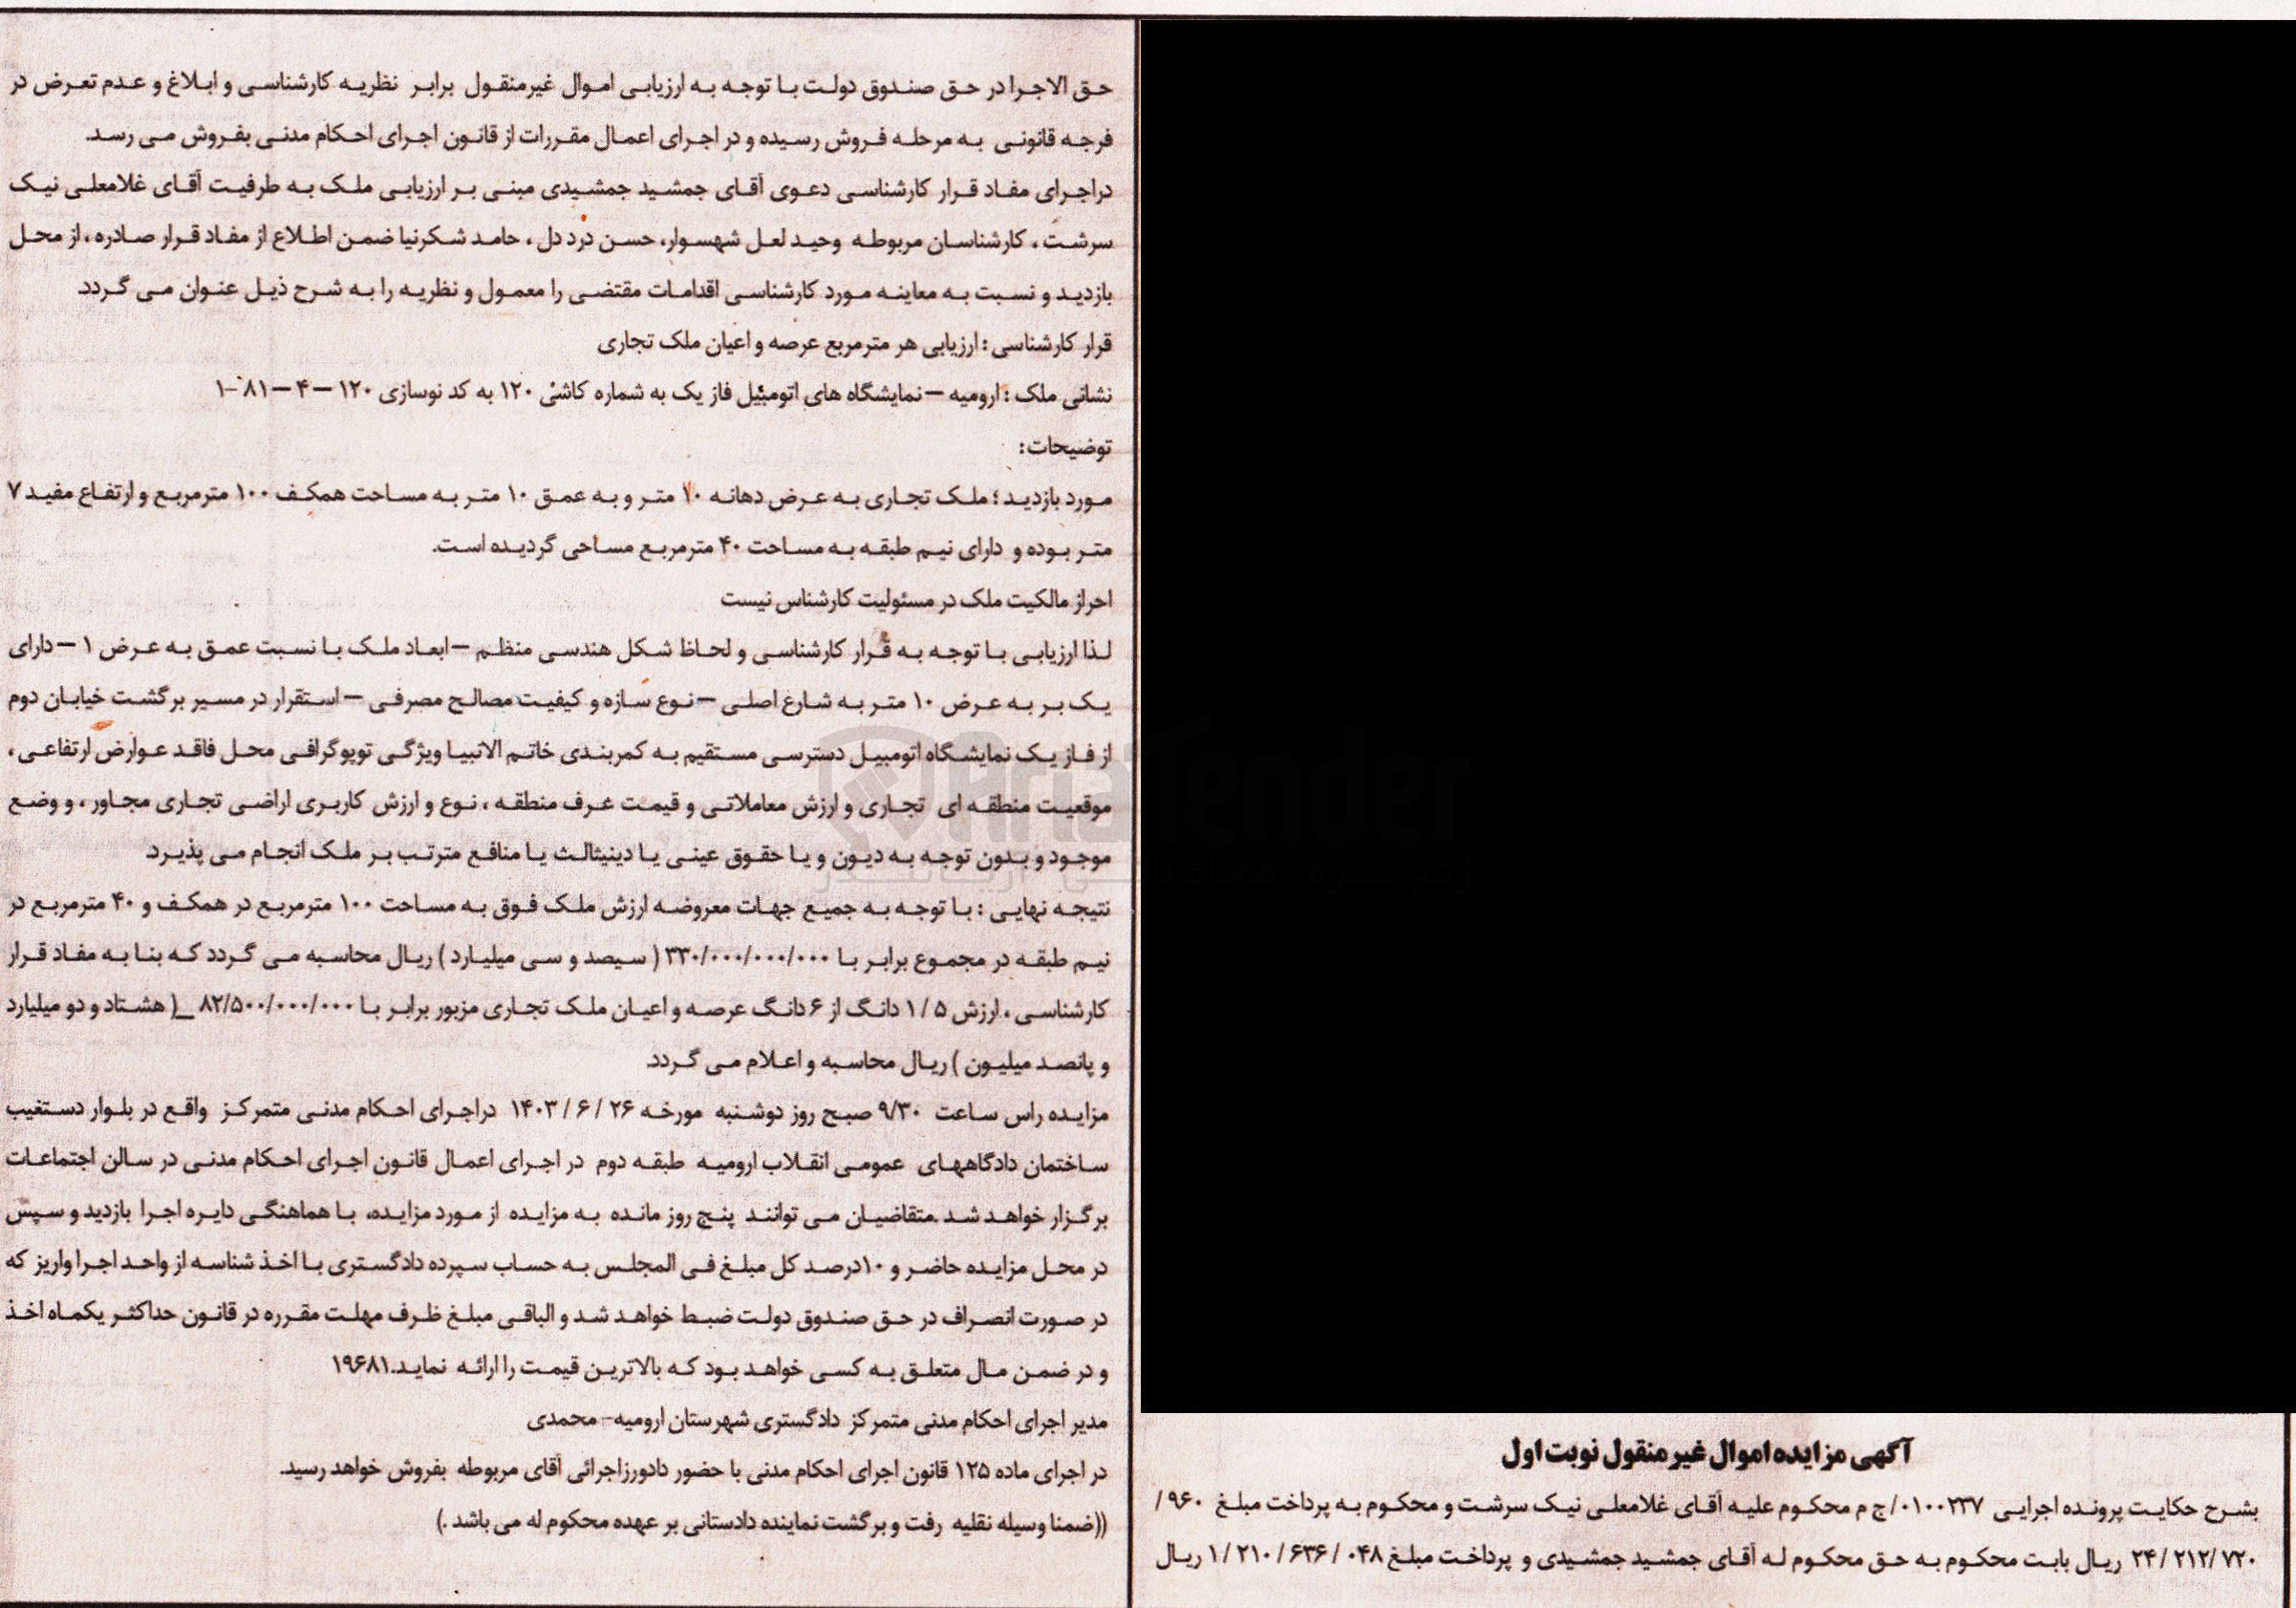 آگهی مزایده اموال غیر منقول نوبت اول
بشرح حکایت پرونده اجرایی ۰۱۰۰۲۳۷/ج م محکوم علیه آقای غلامعلی نیک سرشت و محکوم به پرداخت مبلغ ۹۶۰/
۲۴/۲۱۲/۷۲۰ ریال بابت محکوم به حق محکوم له آقای جمشید جمشیدی و پرداخت مبلغ ۰۴۸ / ۶۳۶ / ۲۱۰ / ۱ ریال
حق الاجرا در حق صندوق دولت با توجه به ارزیابی اموال غیرمنقول برابر نظریه کارشناسی و ابلاغ و عدم تعرض در
فرجه قانونی به مرحله فروش رسیده و در اجرای اعمال مقررات از قانون اجرای احکام مدنی بفروش می رسد.
دراجرای مفاد قرار کارشناسی دعوی آقای جمشید جمشیدی مبنی بر ارزیابی ملک به طرفیت آقای غلامعلی نیک
سرشت ، کارشناسان مربوطه وحید لعل شهسوار، حسن درد دل ، حامد شکرنیا ضمن اطلاع از مفاد قرار صادره ، از محل
بازدید و نسبت به معاینه مورد کارشناسی اقدامات مقتضی را معمول و نظریه را به شرح ذیل عنوان می گردد.
قرار کارشناسی : ارزیابی هر مترمربع عرصه و اعیان ملک تجاری
نشانی ملک : ارومیه – نمایشگاه های اتومبیل فاز یک به شماره کاشی ۱۲۰ به کد نوسازی ۱۲۰ – ۴ – ۸۱ -۱
توضیحات:
مورد بازدید ؛ ملک تجاری به عرض دهانه ۱۰ متر و به عمق ۱۰ متر به مساحت همکف ۱۰۰ مترمربع و ارتفاع مفید ۷
متر بوده و دارای نیم طبقه به مساحت ۴۰ مترمربع مساحی گردیده است.
احراز مالکیت ملک در مسئولیت کارشناس نیست
لذا ارزیابی با توجه به قرار کارشناسی و لحاظ شکل هندسی منظم – ابعاد ملک با نسبت عمق به عرض ۱ – دارای
یک بر به عرض ۱۰ متر به شارع اصلی – نوع سازه و کیفیت مصالح مصرفی – استقرار در مسیر برگشت خیابان دوم
از فاز یک نمایشگاه اتومبیل دسترسی مستقیم به کمربندی خاتم الانبیا ویژگی توپوگرافی محل فاقد عوارض ارتفاعی ،
موقعیت منطقه ای تجاری و ارزش معاملاتی و قیمت عرف منطقه ، نوع و ارزش کاربری اراضی تجاری مجاور ، و وضع
موجود و بدون توجه به دیون و یا حقوق عینی یا دینیثالث یا منافع مترتب بر ملک انجام می پذیرد.
نتیجه نهایی : با توجه به جمیع جهات معروضه ارزش ملک فوق به مساحت ۱۰۰ مترمربع در همکف و ۴۰ مترمربع در
نیم طبقه در مجموع برابر با ۳۳۰/۰۰۰/۰۰۰/۰۰۰ ( سیصد و سی میلیارد ) ریال محاسبه می گردد که بنا به مفاد قرار
کارشناسی ، ارزش ۱/۵ دانگ از ۶ دانگ عرصه و اعیان ملک تجاری مزبور برابر با ۸۲/۵۰۰/۰۰۰/۰۰۰ _( هشتاد و دو میلیارد
و پانصد میلیون ) ریال محاسبه و اعلام می گردد.
مزایده راس ساعت ۹/۳۰ صبح روز دوشنبه مورخه ۲۶ / ۶ / ۱۴۰۳ دراجرای احکام مدنی متمرکز واقع در بلوار دستغیب
ساختمان دادگاههای عمومی انقلاب ارومیه طبقه دوم در اجرای اعمال قانون اجرای احکام مدنی در سالن اجتماعات
برگزار خواهد شد .متقاضیان می توانند پنج روز مانده به مزایده از مورد مزایده، با هماهنگی دایره اجرا بازدید و سپس
در محل مزایده حاضر و ۱۰درصد کل مبلغ فی المجلس به حساب سپرده دادگستری با اخذ شناسه از واحد اجرا واریز که
در صورت انصراف در حق صندوق دولت ضبط خواهد شد و الباقی مبلغ ظرف مهلت مقرره در قانون حداکثر یکماه اخذ
و در ضمن مال متعلق به کسی خواهد بود که بالاترین قیمت را ارائه نماید.۱۹۶۸۱
مدیر اجرای احکام مدنی متمرکز دادگستری شهرستان ارومیه- محمدی
در اجرای ماده ۱۲۵ قانون اجرای احکام مدنی با حضور دادورزاجرائی آقای مربوطه بفروش خواهد رسید.
((ضمنا وسیله نقلیه رفت و برگشت نماینده دادستانی بر عهده محکوم له می باشد .)
AriaTender